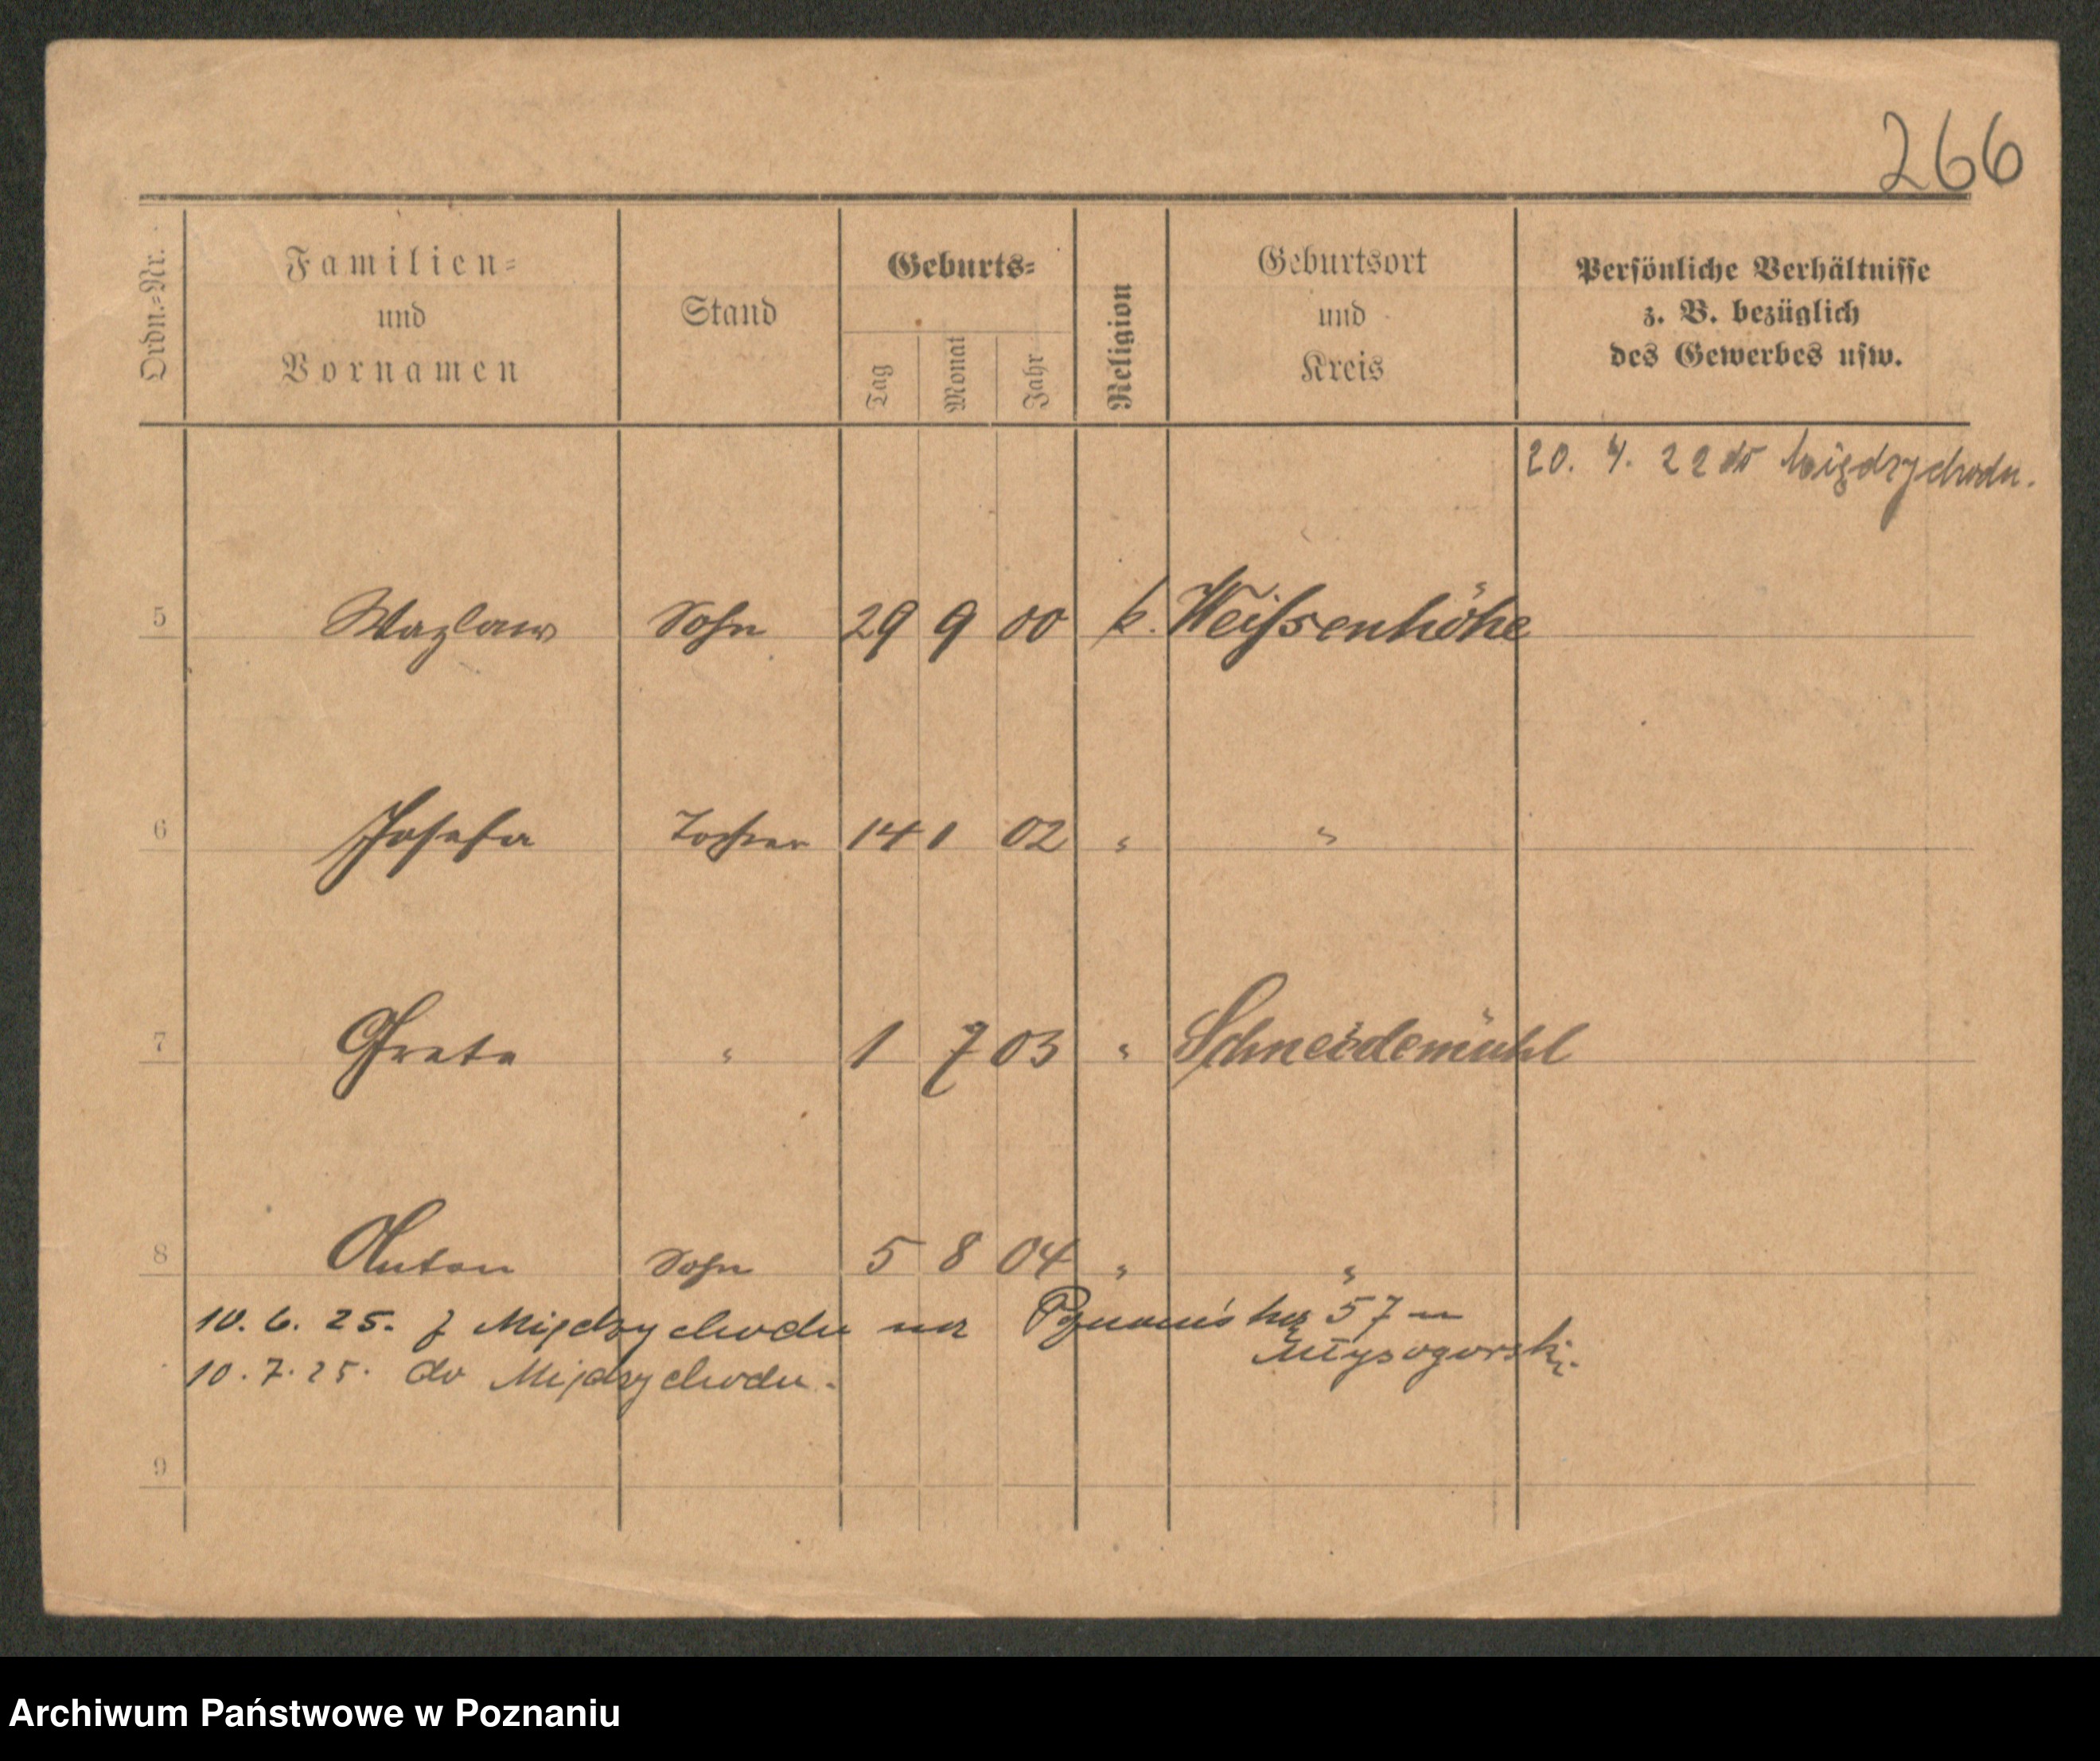 266
Ordn.-Nr.
Familien-
und
Vornamen
Stand
Geburts-
Tag
Monat
Jahr
Religion
Geburtsort
und
Kreis
Persönliche Verhältnisse
z. B. bezüglich
des Gewerbes usw.
20. 4. 22 do Międzychodu.
5 Wazlaw Sohn 29 9 00 k. Weißenhöhe
6 Josefa Tochter 14 1 02 " "
7 Greta " 1 7 03 " Schneidemühl
8 Anton Sohn 5 8 04 " "
10. 6. 25. z Międzychodu na 57 u
10. 7. 25. do Międzychodu.
9
Archiwum Państwowe w Poznaniu